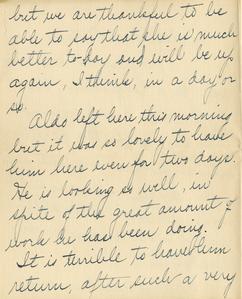 but we are thankful to be
able to say that she is much
better to-day and will be up
again, I think, in a day or
so.
Aldo left here this morning
but it was so lovely to have
him here even for two days.
He is looking so well, in
spite of the great amount of
work he has been doing.
It is terrible to have him
return, after such a very